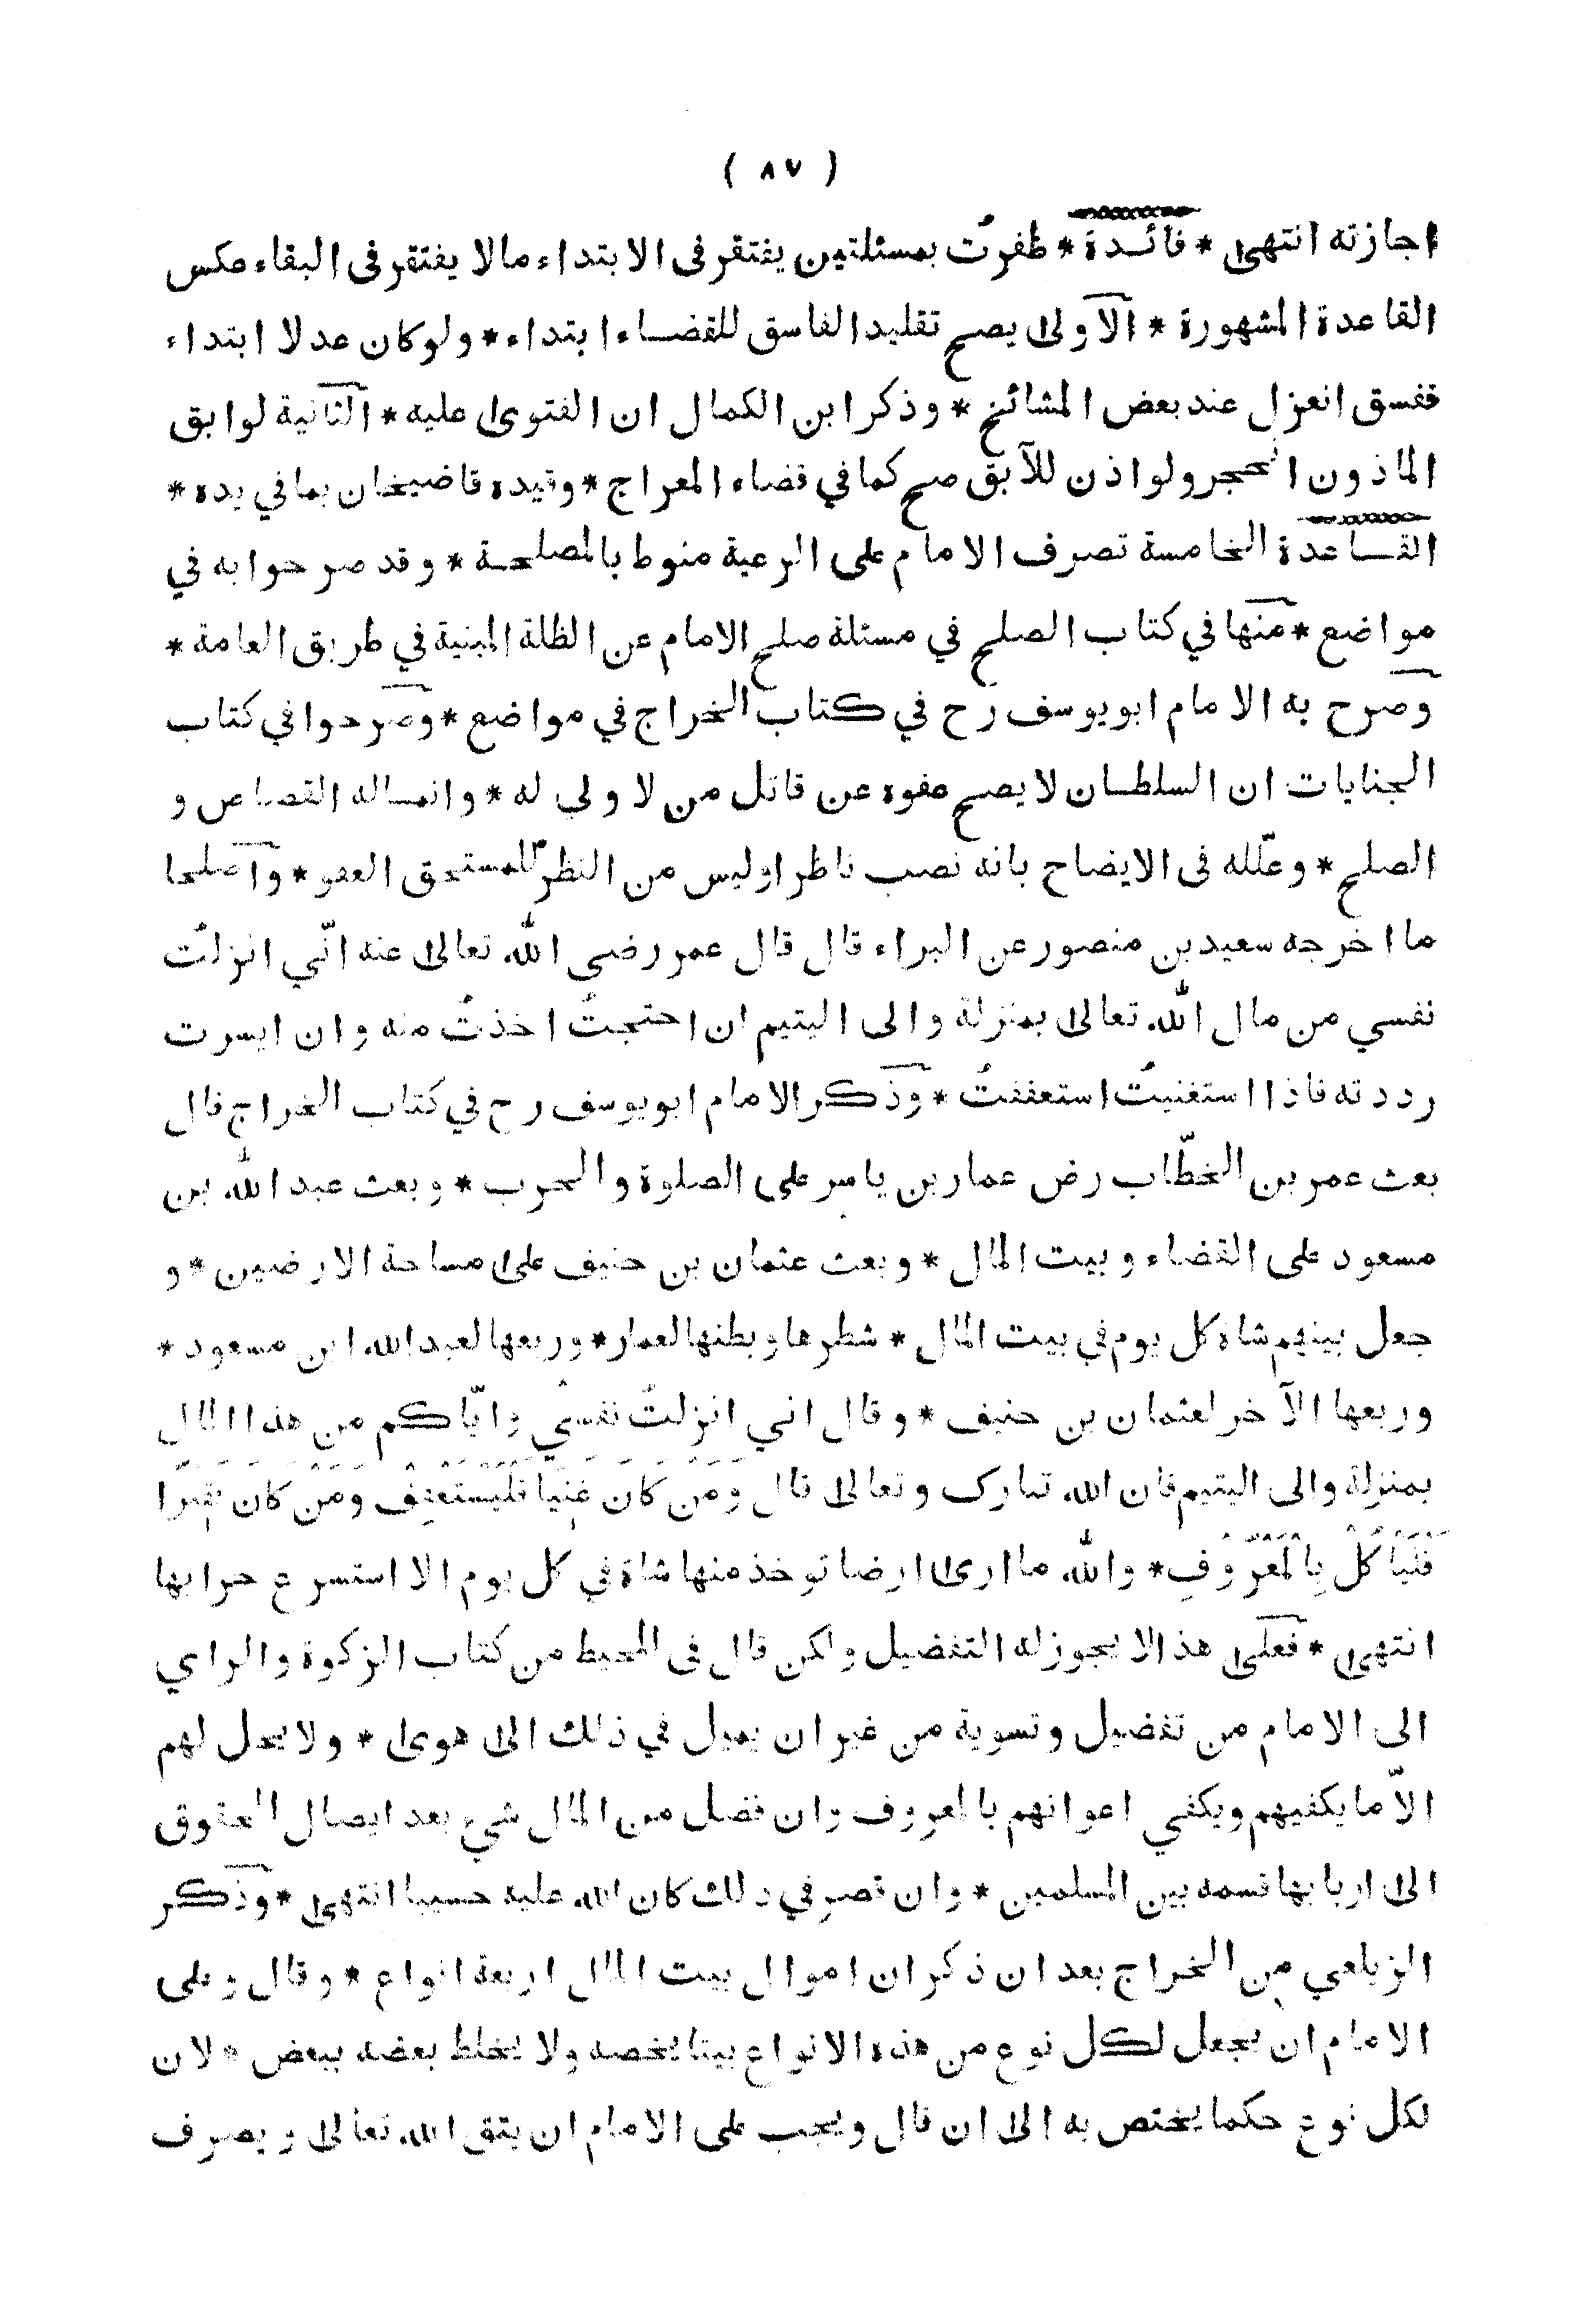 ( ٨٧ )
اجازته انتهى * فائدة * ظفرتُ بمسئلتين يفتقر فى الابتداء مالا يفتقر فى البقاء عكس
القاعدة المشهورة * الأولى يصح تقليد الفاسق للقضاء ابتداء * ولو كان عدلا ابتداء
ففسق انعزل عند بعض المشائخ * وذكر ابن الكمال ان الفتوى عليه * الثانية لو ابق
الماذون انحجر ولو اذن للآبق صح كما في قضاء المعراج * وقيده قاضيخان بما في يده *
القاعدة الخامسة تصرف الامام على الرعية منوط بالمصلحة * وقد صرحوا به في
مواضع * منها في كتاب الصلح في مسئلة صلح الامام عن الظلة المبنية في طريق العامة *
وصرح به الامام ابو يوسف رح في كتاب الخراج في مواضع * وصرحوا في كتاب
الجنايات ان السلطان لا يصح عفوه عن قاتل من لا ولي له * وانما له القصاص و
الصلح * وعلّله فى الايضاح بانه نصب ناظرا وليس من النظر للمستحق العفو * واصلها
ما اخرجه سعيد بن منصور عن البراء قال قال عمر رضى الله تعالى عنه انّي انزلتُ
نفسي من مال الله تعالى بمنزلة والى اليتيم ان احتجتُ اخذتُ منه وان ايسرت
رددته فاذا استغنيتُ استعففتُ * وذكر الامام ابو يوسف رح في كتاب الخراج قال
بعث عمر بن الخطّاب رض عمار بن ياسر على الصلوة والحرب * وبعث عبد الله بن
مسعود على القضاء وبيت المال * وبعث عثمان بن حنيف على مساحة الارضين * و
جعل بينهم شاة كل يوم في بيت المال * شطرها وبطنها لعمار * وربعها لعبد الله ابن مسعود *
وربعها الآخر لعثمان بن حنيف * وقال اني انزلتُ نفسي وايّاكم من هذا المال
بمنزلة والى اليتيم فان الله تبارك وتعالى قال وَمَنْ كَانَ غَنِيًّا فَلْيَسْتَعْفِفْ وَمَنْ كَانَ فَقِيرًا
فَلْيَأْكُلْ بِالْمَعْرُوفِ * والله ما ارى ارضا توخذ منها شاة في كل يوم الا استسرع خرابها
انتهى * فعلى هذا لا يجوز له التفضيل ولكن قال فى المحيط من كتاب الزكوة والراي
الى الامام من تفضيل وتسوية من غير ان يميل في ذلك الى هوى * ولا يحل لهم
الّا ما يكفيهم ويكفي اعوانهم بالمعروف وان فضل من المال شيء بعد ايصال الحقوق
الى اربابها قسمه بين المسلمين * وان قصر في ذلك كان الله عليه حسيبا انتهى * وذكر
الزيلعي من الخراج بعد ان ذكر ان اموال بيت المال اربعة انواع * وقال وعلى
الامام ان يجعل لكل نوع من هذه الانواع بيتا يخصه ولا يخلط بعضه ببعض * لان
لكل نوع حكما يختص به الى ان قال ويجب على الامام ان يتق الله تعالى ويصرف